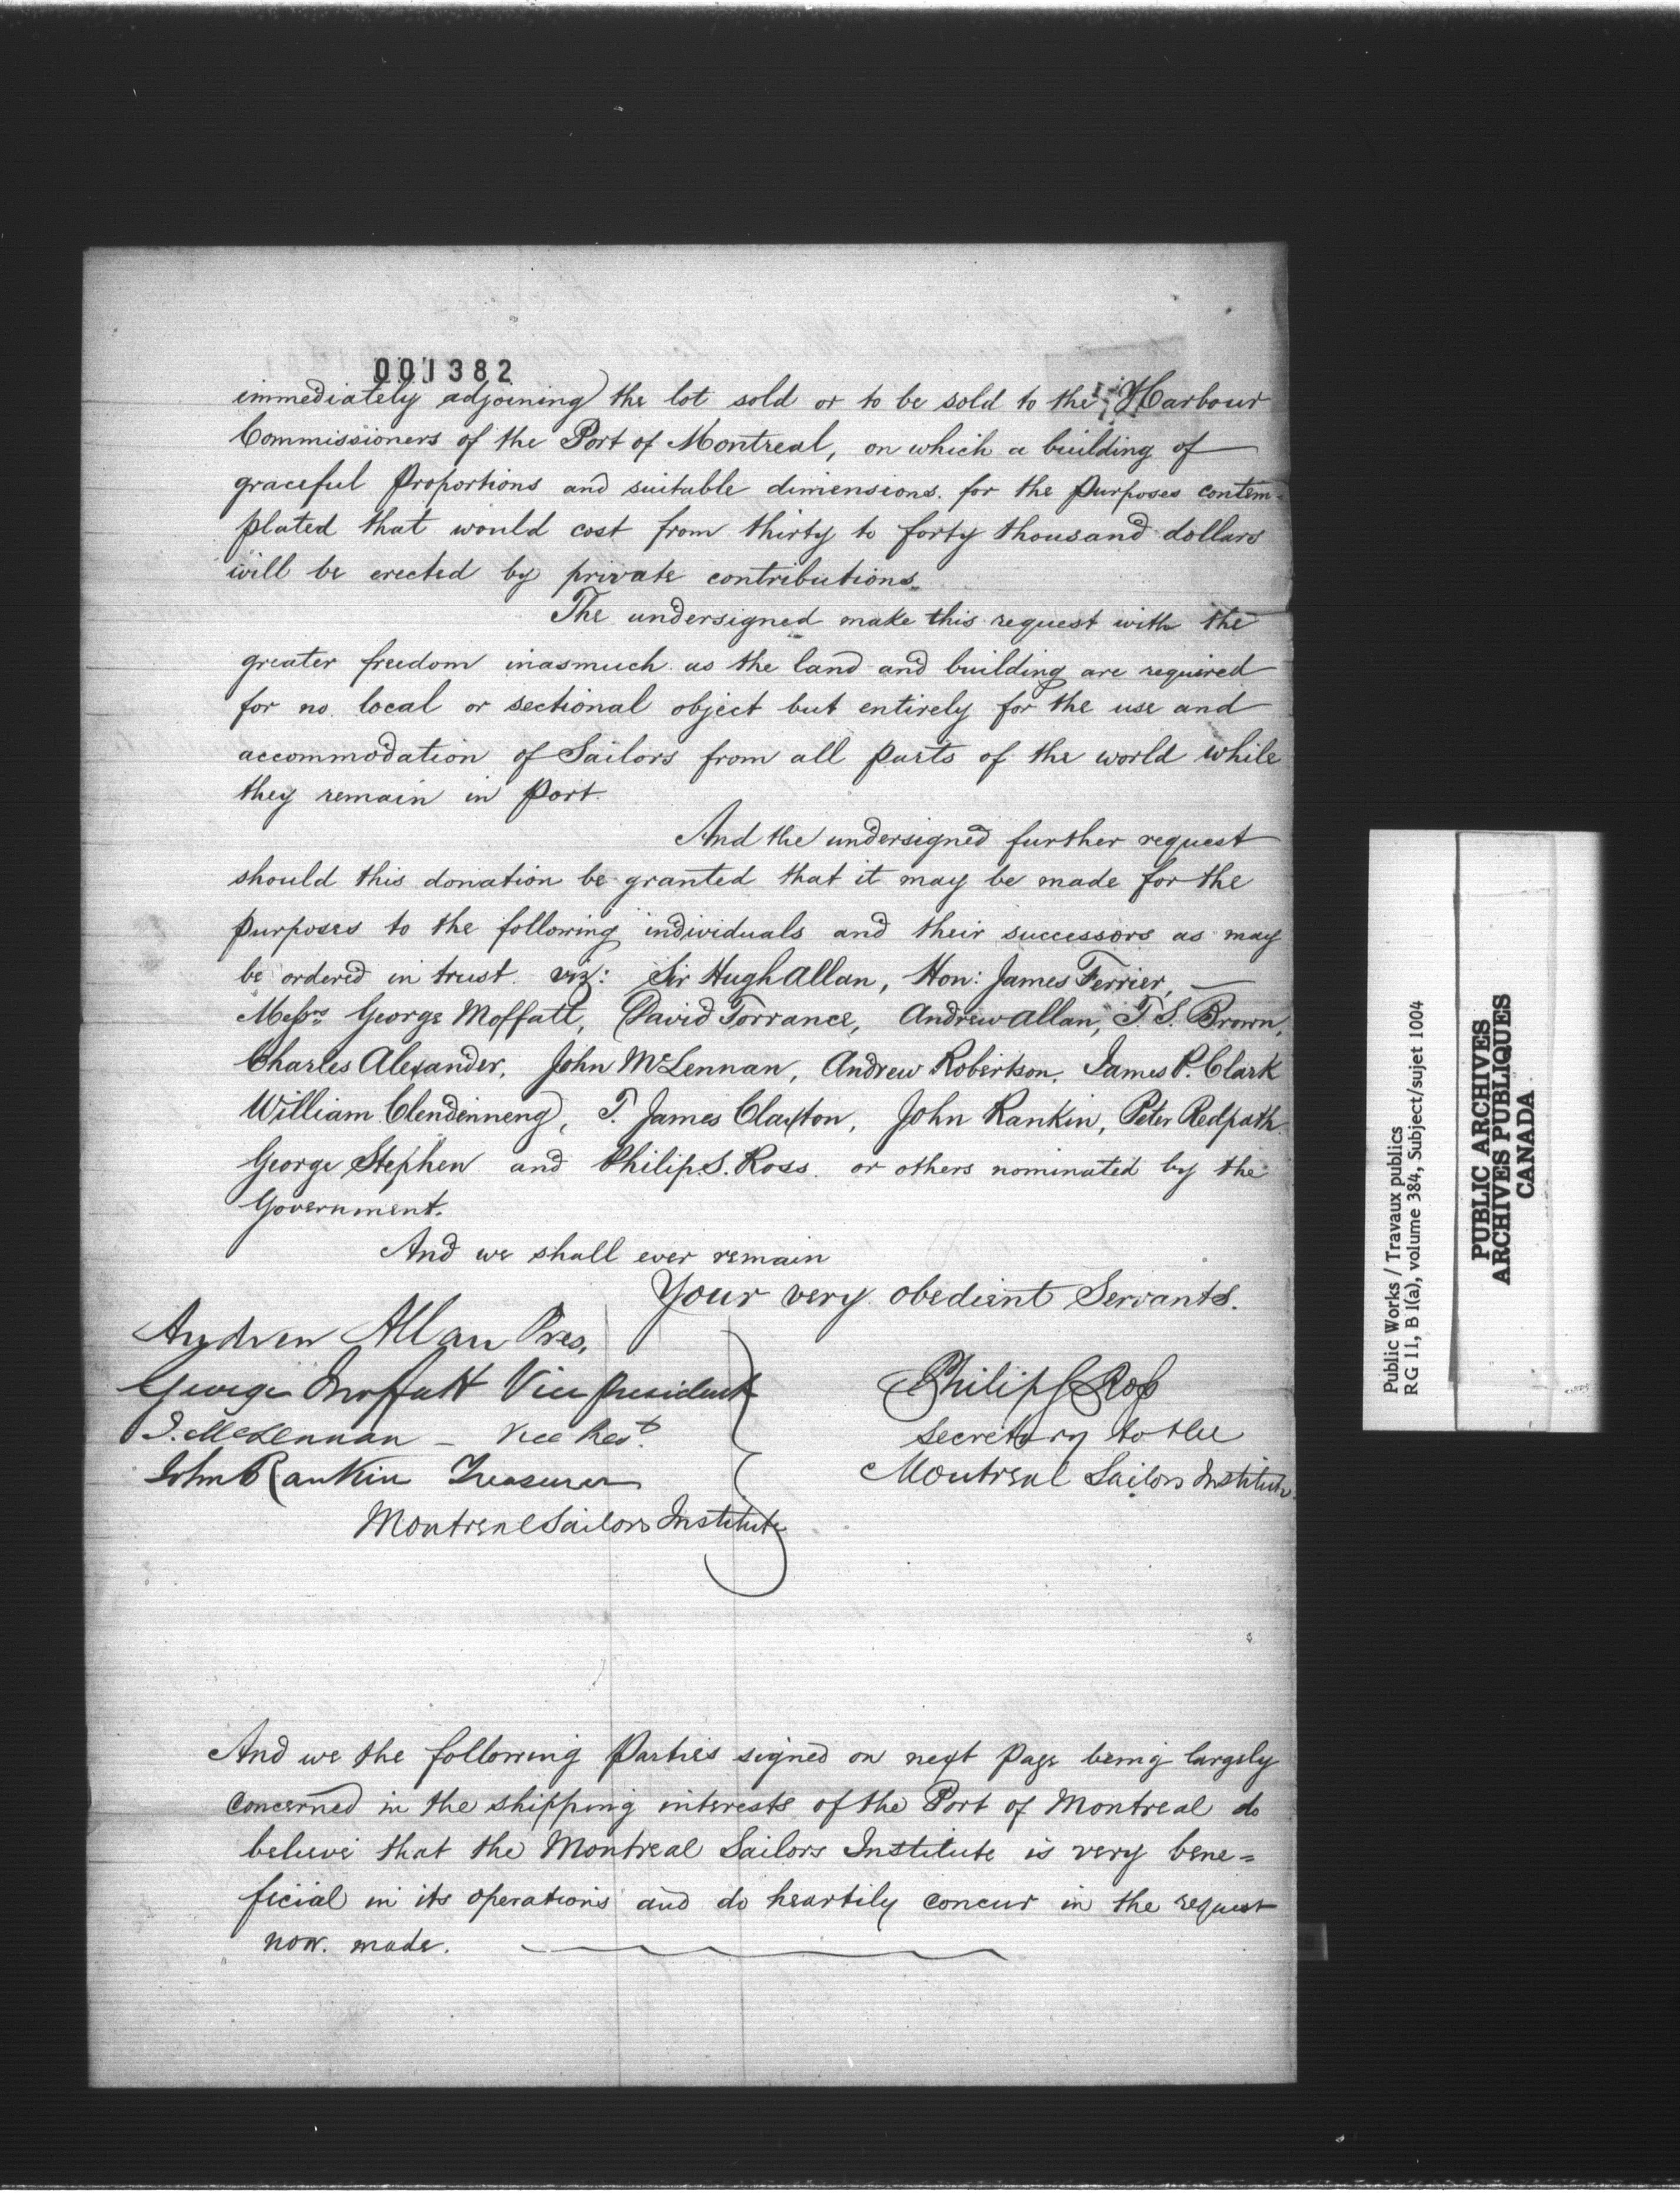 001382
immediately adjoining the lot sold or to be sold to the Harbour
Commissioners of the Port of Montreal, on which a building of
graceful proportions and suitable dimensions for the purposes contem=
plated that would cost from thirty to forty thousand dollars
will be erected by private contributions.
The undersigned make this request with the
greater freedom inasmuch as the land and building are required
for no local or sectional object but entirely for the use and
accommodation of Sailors from all parts of the world while
they remain in Port.
And the undersigned further request
should this donation be granted that it may be made for the
purposes to the following individuals and their successors as may
be ordered in trust. viz: Sir Hugh Allan, Hon: James Ferrier,
Messrs George Moffatt, David Torrance, Andrew Allan, T. S. Brown,
Charles Alexander, John McLennan, Andrew Robertson, James P. Clark
William Clendinneng, T. James Claxton, John Rankin, Peter Redpath
George Stephen and Philip S. Ross or others nominated by the
Government.
And we shall ever remain
Your very obedient Servants.
Andrew Allan Pres.
George Moffatt Vice President
J. McLennan – Vice Prest.
John Rankin Treasurer
Montreal Sailors Institute
Philip S Ross
Secretary to the
Montreal Sailors Institute
And we the following Parties signed on next page being largely
concerned in the shipping interests of the Port of Montreal do
believe that the Montreal Sailors Institute is very bene=
ficial in its operations and do heartily concur in the request
now made.
Public Works / Travaux publics
RG 11, B 1(a), volume 384, Subject/sujet 1004
PUBLIC ARCHIVES
ARCHIVES PUBLIQUES
CANADA